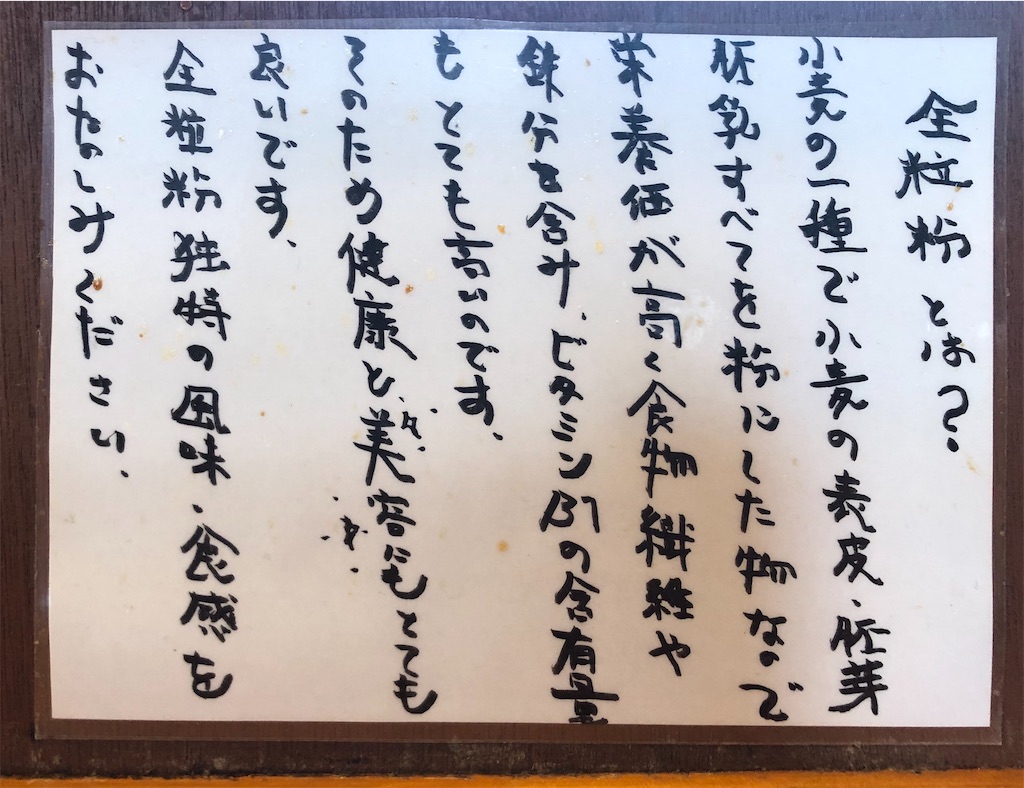 全粒粉とは?
小麦の一種で小麦の表皮・胚芽
胚乳すべてを粉にした物なので
栄養価が高く食物繊維や
鉄分を含み、ビタミンB1の含有量
もとても高いのです、
そのため健康と美容にもとても
良いです、
全粒粉独特の風味・食感を
おたのしみください、